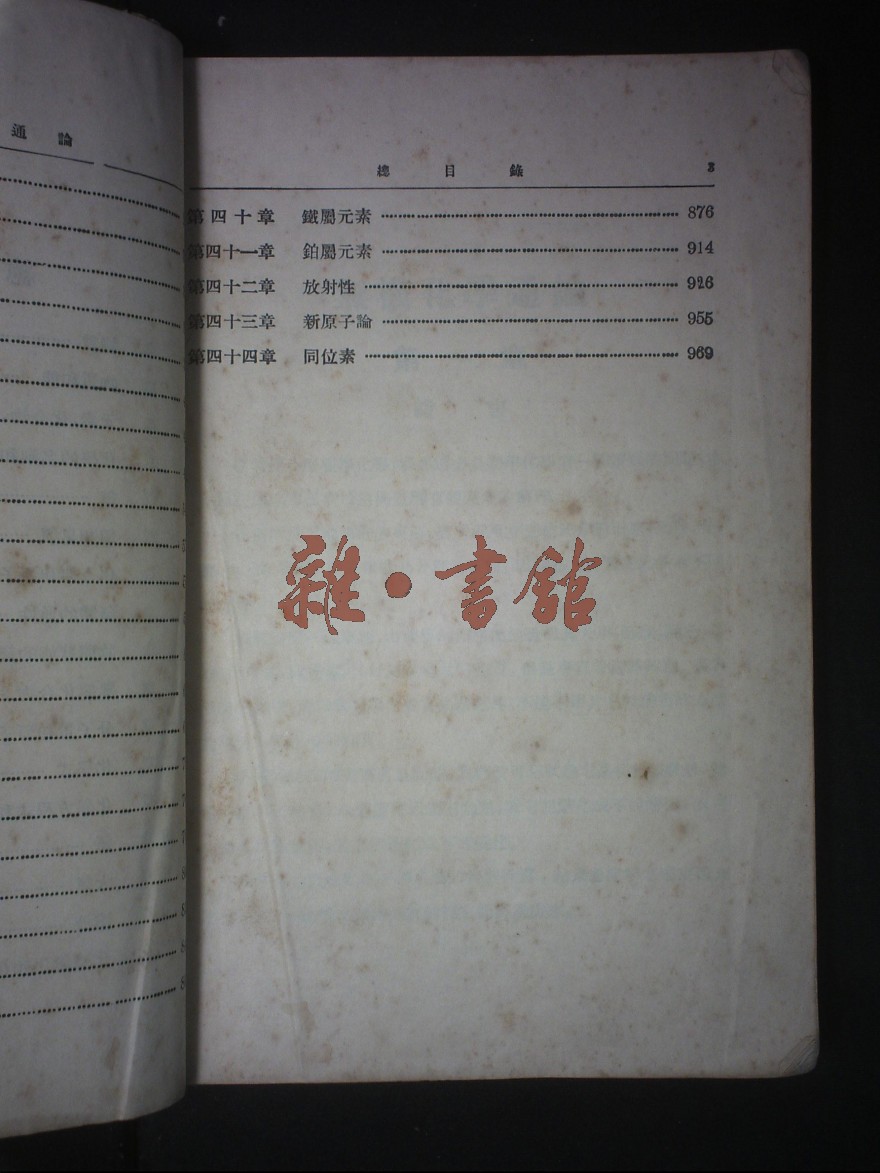 通論
總目錄 3
第四十章 鐵屬元素 876
第四十一章 鉑屬元素 914
第四十二章 放射性 926
第四十三章 新原子論 955
第四十四章 同位素 969
雜·書館